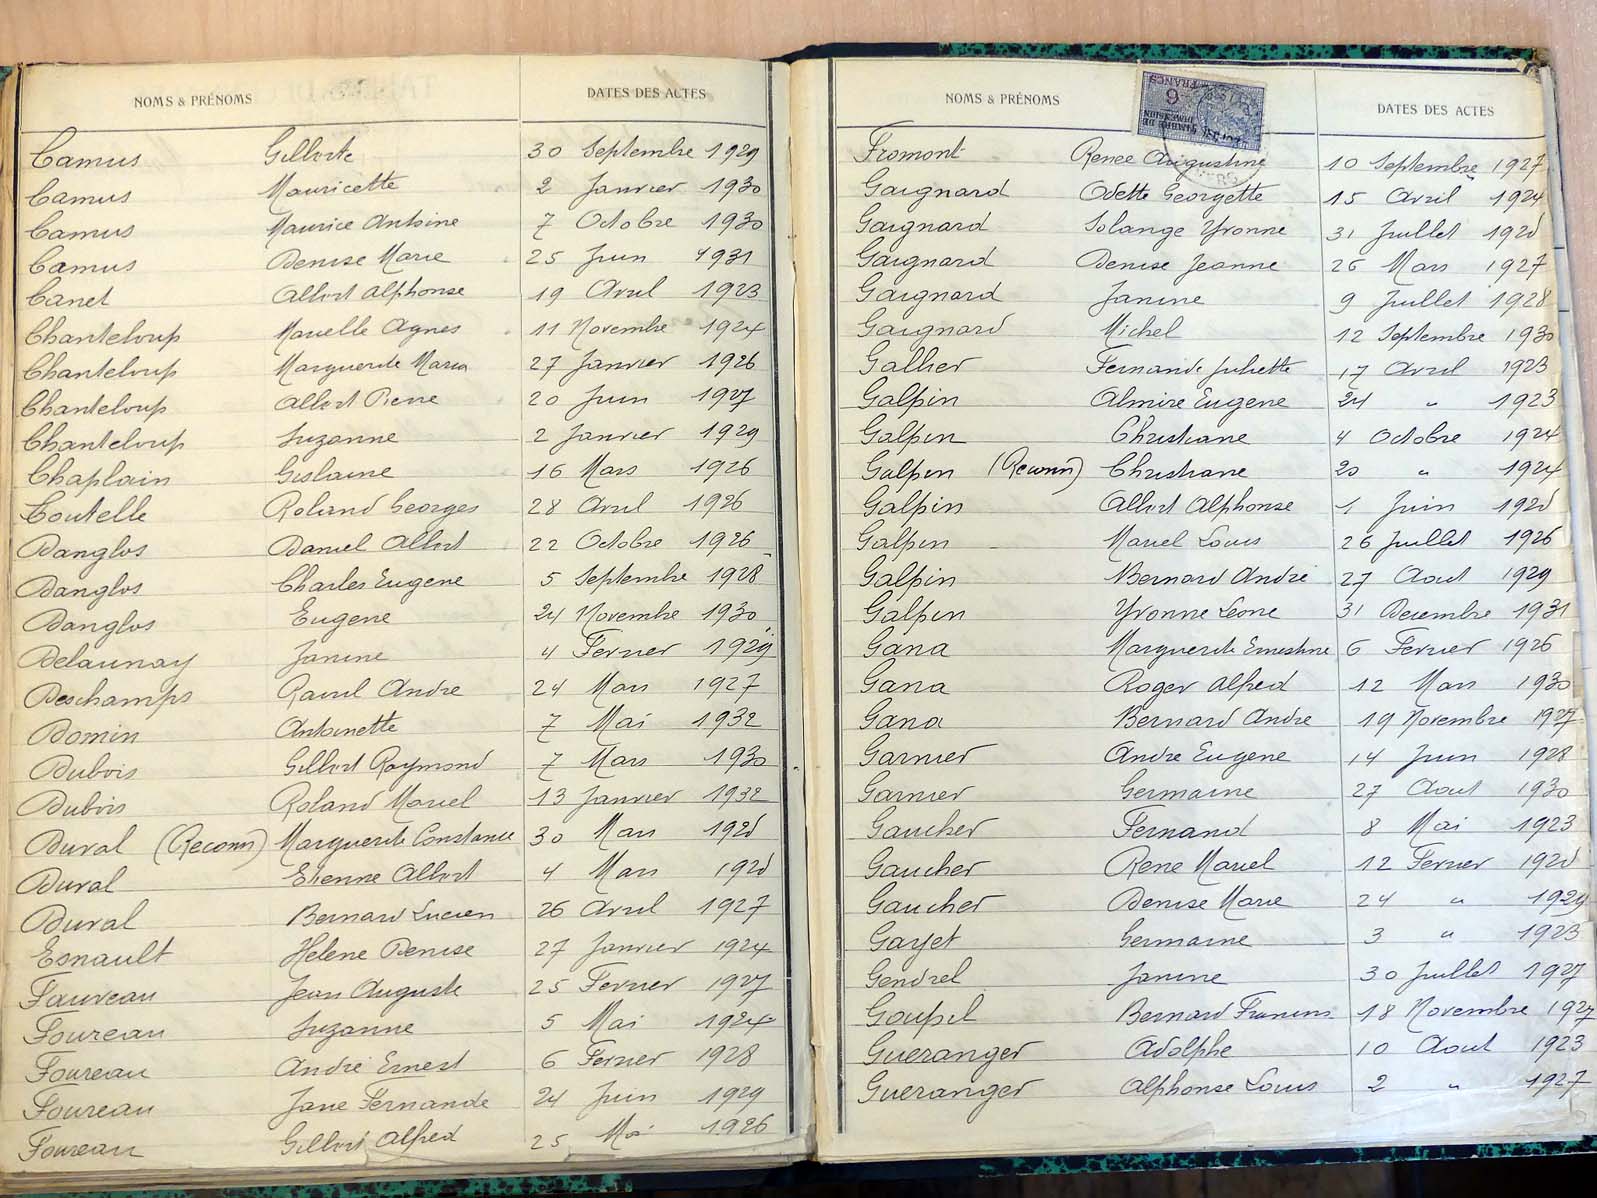 NOMS & PRÉNOMS DATES DES ACTES
Camus Gilberte 30 Septembre 1929
Camus Mauricette 2 Janvier 1930
Camus Maurice Antoine 7 Octobre 1930
Camus Denise Marie 25 Juin 1931
Canet Albert Alphonse 19 Avril 1923
Chanteloup Marcelle Agnes 11 Novembre 1924
Chanteloup Marguerite Maria 27 Janvier 1926
Chanteloup Albert Pierre 20 Juin 1927
Chanteloup Suzanne 2 Janvier 1929
Chaplain Gislaine 16 Mars 1926
Coutelle Roland Georges 28 Avril 1926
Danglos Daniel Albert 22 Octobre 1926
Danglos Charles Eugene 5 Septembre 1928
Danglos Eugene 24 Novembre 1930
Delaunay Janine 4 Fevrier 1929
Deschamps Raoul Andre 24 Mars 1927
Domin Antoinette 7 Mai 1932
Dubois Gilbert Raymond 7 Mars 1930
Dubois Roland Marcel 13 Janvier 1932
Duval (Reconn) Marguerite Constance 30 Mars 1925
Duval Etienne Albert 4 Mars 1925
Duval Bernard Lucien 26 Avril 1927
Esnault Helene Denise 27 Janvier 1924
Faureau Jean Auguste 25 Fevrier 1927
Foureau Suzanne 5 Mai 1924
Foureau André Ernest 6 Fevrier 1928
Foureau Jane Fernande 24 Juin 1929
Foureau Gilbert Alfred 25 Mai 1926
NOMS & PRÉNOMS DATES DES ACTES
6 FRANCS
TIMBRE DE DIMENSION
Fromont Renee Augustine 10 Septembre 1927
Gaignard Odette Georgette 15 Avril 1924
Gaignard Solange Yvonne 31 Juillet 1925
Gaignard Denise Jeanne 26 Mars 1927
Gaignard Janine 9 Juillet 1928
Gaignard Michel 12 Septembre 1930
Gallier Fernande Juliette 17 Avril 1923
Galpin Almire Eugene 24 " 1923
Galpin Christiane 4 Octobre 1924
Galpin (Reconn) Christiane 20 " 1924
Galpin Albert Alphonse 1 Juin 1925
Galpin Marcel Louis 26 Juillet 1926
Galpin Bernard André 27 Aout 1929
Galpin Yvonne Leone 31 Decembre 1931
Gana Marguerite Ernestine 6 Fevrier 1926
Gana Roger Alfred 12 Mars 1930
Gana Bernard Andre 19 Novembre 1927
Garnier Andre Eugene 14 Juin 1928
Garnier Germaine 27 Aout 1930
Gaucher Fernand 8 Mai 1923
Gaucher Rene Marcel 12 Fevrier 1925
Gaucher Denise Marie 24 " 1929
Gayet Germaine 3 " 1923
Gendrel Janine 30 Juillet 1927
Goupil Bernard Francis 18 Novembre 1927
Gueranger Adolphe 10 Aout 1923
Gueranger Alphonse Louis 2 " 1927